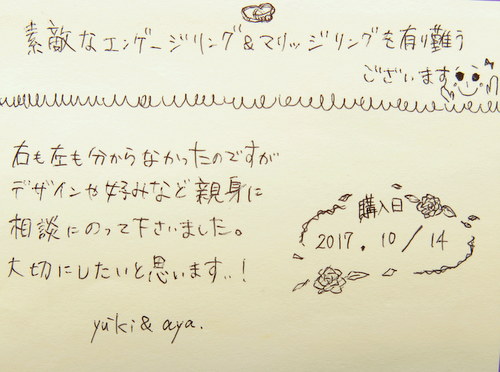 素敵なエンゲージリング&マリッジリングを有り難う
ございます
右も左も分からなかったのですが
デザインや好みなど親身に
相談にのって下さいました。
大切にしたいと思います..!
yuki & aya.
購入日
2017. 10/14